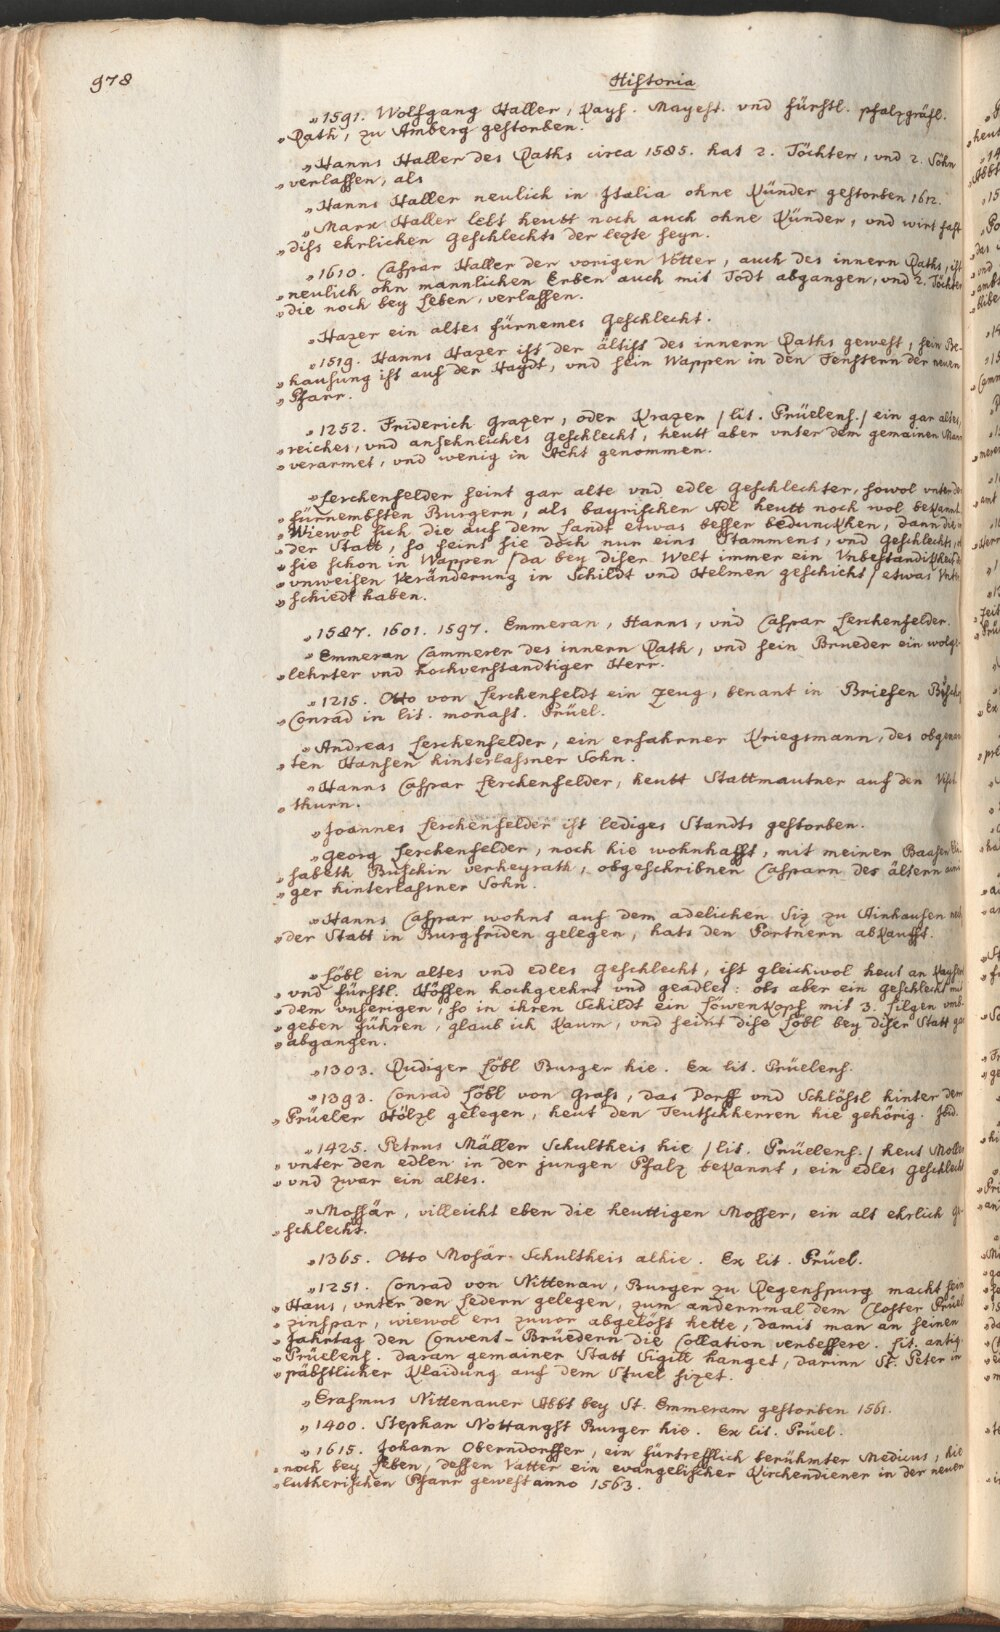 978
Historia
„1591. Wolfgang Haller, Kays. Mayest. vnd fürstl. pfalzgräfl.
„Rath, zu Amberg gestorben.
„Hanns Haller des Raths circa 1585. hat 2. Töchter, vnd 2. Söhn
„verlassen, als
„Hanns Haller neulich in Italia ohne Künder gestorben 1612.
„Marx Haller lebt heutt noch auch ohne Künder, vnd wirt fast
„diss ehrlichen Geschlechts der lezte seyn.
„1610. Caspar Haller der vorigen Vötter, auch des innern Raths, ist
„neulich ohn mannlichen Erben auch mit Todt abgangen, vnd 2. Töchter
„die noch bey Leben, verlassen.
„Hazer ein altes fürnemes Geschlecht.
„1519. Hanns Hazer ist der ältist des innern Raths gewest, sein Be-
„hausung ist auf der Haydt, vnd sein Wappen in den Fenstern der neuen
„Pfarr.
„1252. Friderich Grazer, oder Krazer / lit. Prüelens. / ein gar altes,
„reiches, vnd ansehnliches Geschlecht, heutt aber vnter dem gemainen Mann
„verarmet, vnd wenig in Acht genommen.
„Lerchenfelder seint gar alte vnd edle Geschlechter, sowol vnter den
„fürnembsten Burgern, als bayrischen Adl heutt noch wol bekannt.
„Wiewol sich die auf dem Landt etwas besser beduncken, dann die in
„der Statt, so seint sie doch nur eins Stammens, vnd Geschlechts, ob
„sie schon in Wappen / da bey diser Welt immer ein Vnbestandigkheit
„vnweisen Veränderung in Schildt vnd Helmen geschicht / etwas Vnter-
„schiedt haben.
„1587. 1601. 1597. Emmeran, Hanns, vnd Caspar Lerchenfelder.
„Emmeran Cammerer des innern Rath, vnd sein Brueder ein wolge-
„lehrter vnd hochverstandtiger Herr.
„1215. Otto von Lerchenfeldt ein Zeug, benant in Briefen Bischofs
„Conrad in lit. monast. Prüel.
„Andreas Lerchenfelder, ein erfahrner Kriegsmann, des obgenan-
„ten Hansen hinterlassner Sohn.
„Hanns Caspar Lerchenfelder, heutt Stattmautner auf den
„thurn.
„Joannes Lerchenfelder ist lediges Standts gestorben.
„Georg Lerchenfelder, noch hie wohnhafft, mit meiner Baasen Eli-
„sabeth Büschin verheyrath, obgeschribnen Casparn des ältern aini-
„ger hinterlassner Sohn.
„Hanns Caspar wohnt auf dem adelichen Siz zu Ainhausen
„der Statt in Burgfriden gelegen, hats den Portnern abkaufft.
„Löbl ein altes vnd edles Geschlecht, ist gleichwol heut an Kayserl.
„vnd fürstl. Höffen hochgeehrt vnd geadlet: obs aber ein Geschlecht mit
„dem vnserigen, so in ihren Schildt ein Löwenkopf mit 3. Lilgen vmb-
„geben führen, glaub ich kaum, vnd seint dise Löbl bey diser Statt gar
„abgangen.
„1303. Rudiger Löbl Burger hie. Ex lit. Prüelens.
„1393. Conrad Löbl von Grass, das Dorff vnd Schlössl hinter dem
„Prüeler Hölzl gelegen, heut den Teutschherren hie gehörig. Ibid.
„1425. Petrus Mäller Schultheis hie / lit. Prüelens. / heut Moller
„vnter den edlen in der jungen Pfalz bekannt, ein edles Geschlecht
„vnd zwar ein altes.
„Mossär, villeicht eben die heuttigen Mosser, ein alt ehrlich Ge-
„schlecht.
„1365. Otto Mosär Schultheis alhie. Ex lit. Prüel.
„1251. Conrad von Nittenau, Burger zu Regenspurg macht sein
„Haus, vnter den Ledern gelegen, zum andernmal dem Closter Prüel
„zinspar, wiewol ers zuvor abgelöst hette, damit man an seinen
„Jahrtag den Convent-Brüedern die Collation verbessere. Lit. antiq.
„Prüelens. daran gemainer Statt Sigill hanget, darinn St. Peter in
„päbstlicher Klaidung auf dem Stuel sizet.
„Erasmus Nittenauer Abbt bey St. Emmeram gestorben 1561.
„1400. Stephan Nottangst Burger hie. Ex lit. Prüel.
„1615. Johann Oberndorffer, ein fürtrefflich berühmter Medicus, hie
„noch bey Leben, dessen Vatter ein evangelischer Kirchendiener in der neuen
„lutherischen Pfarr gewest anno 1563.